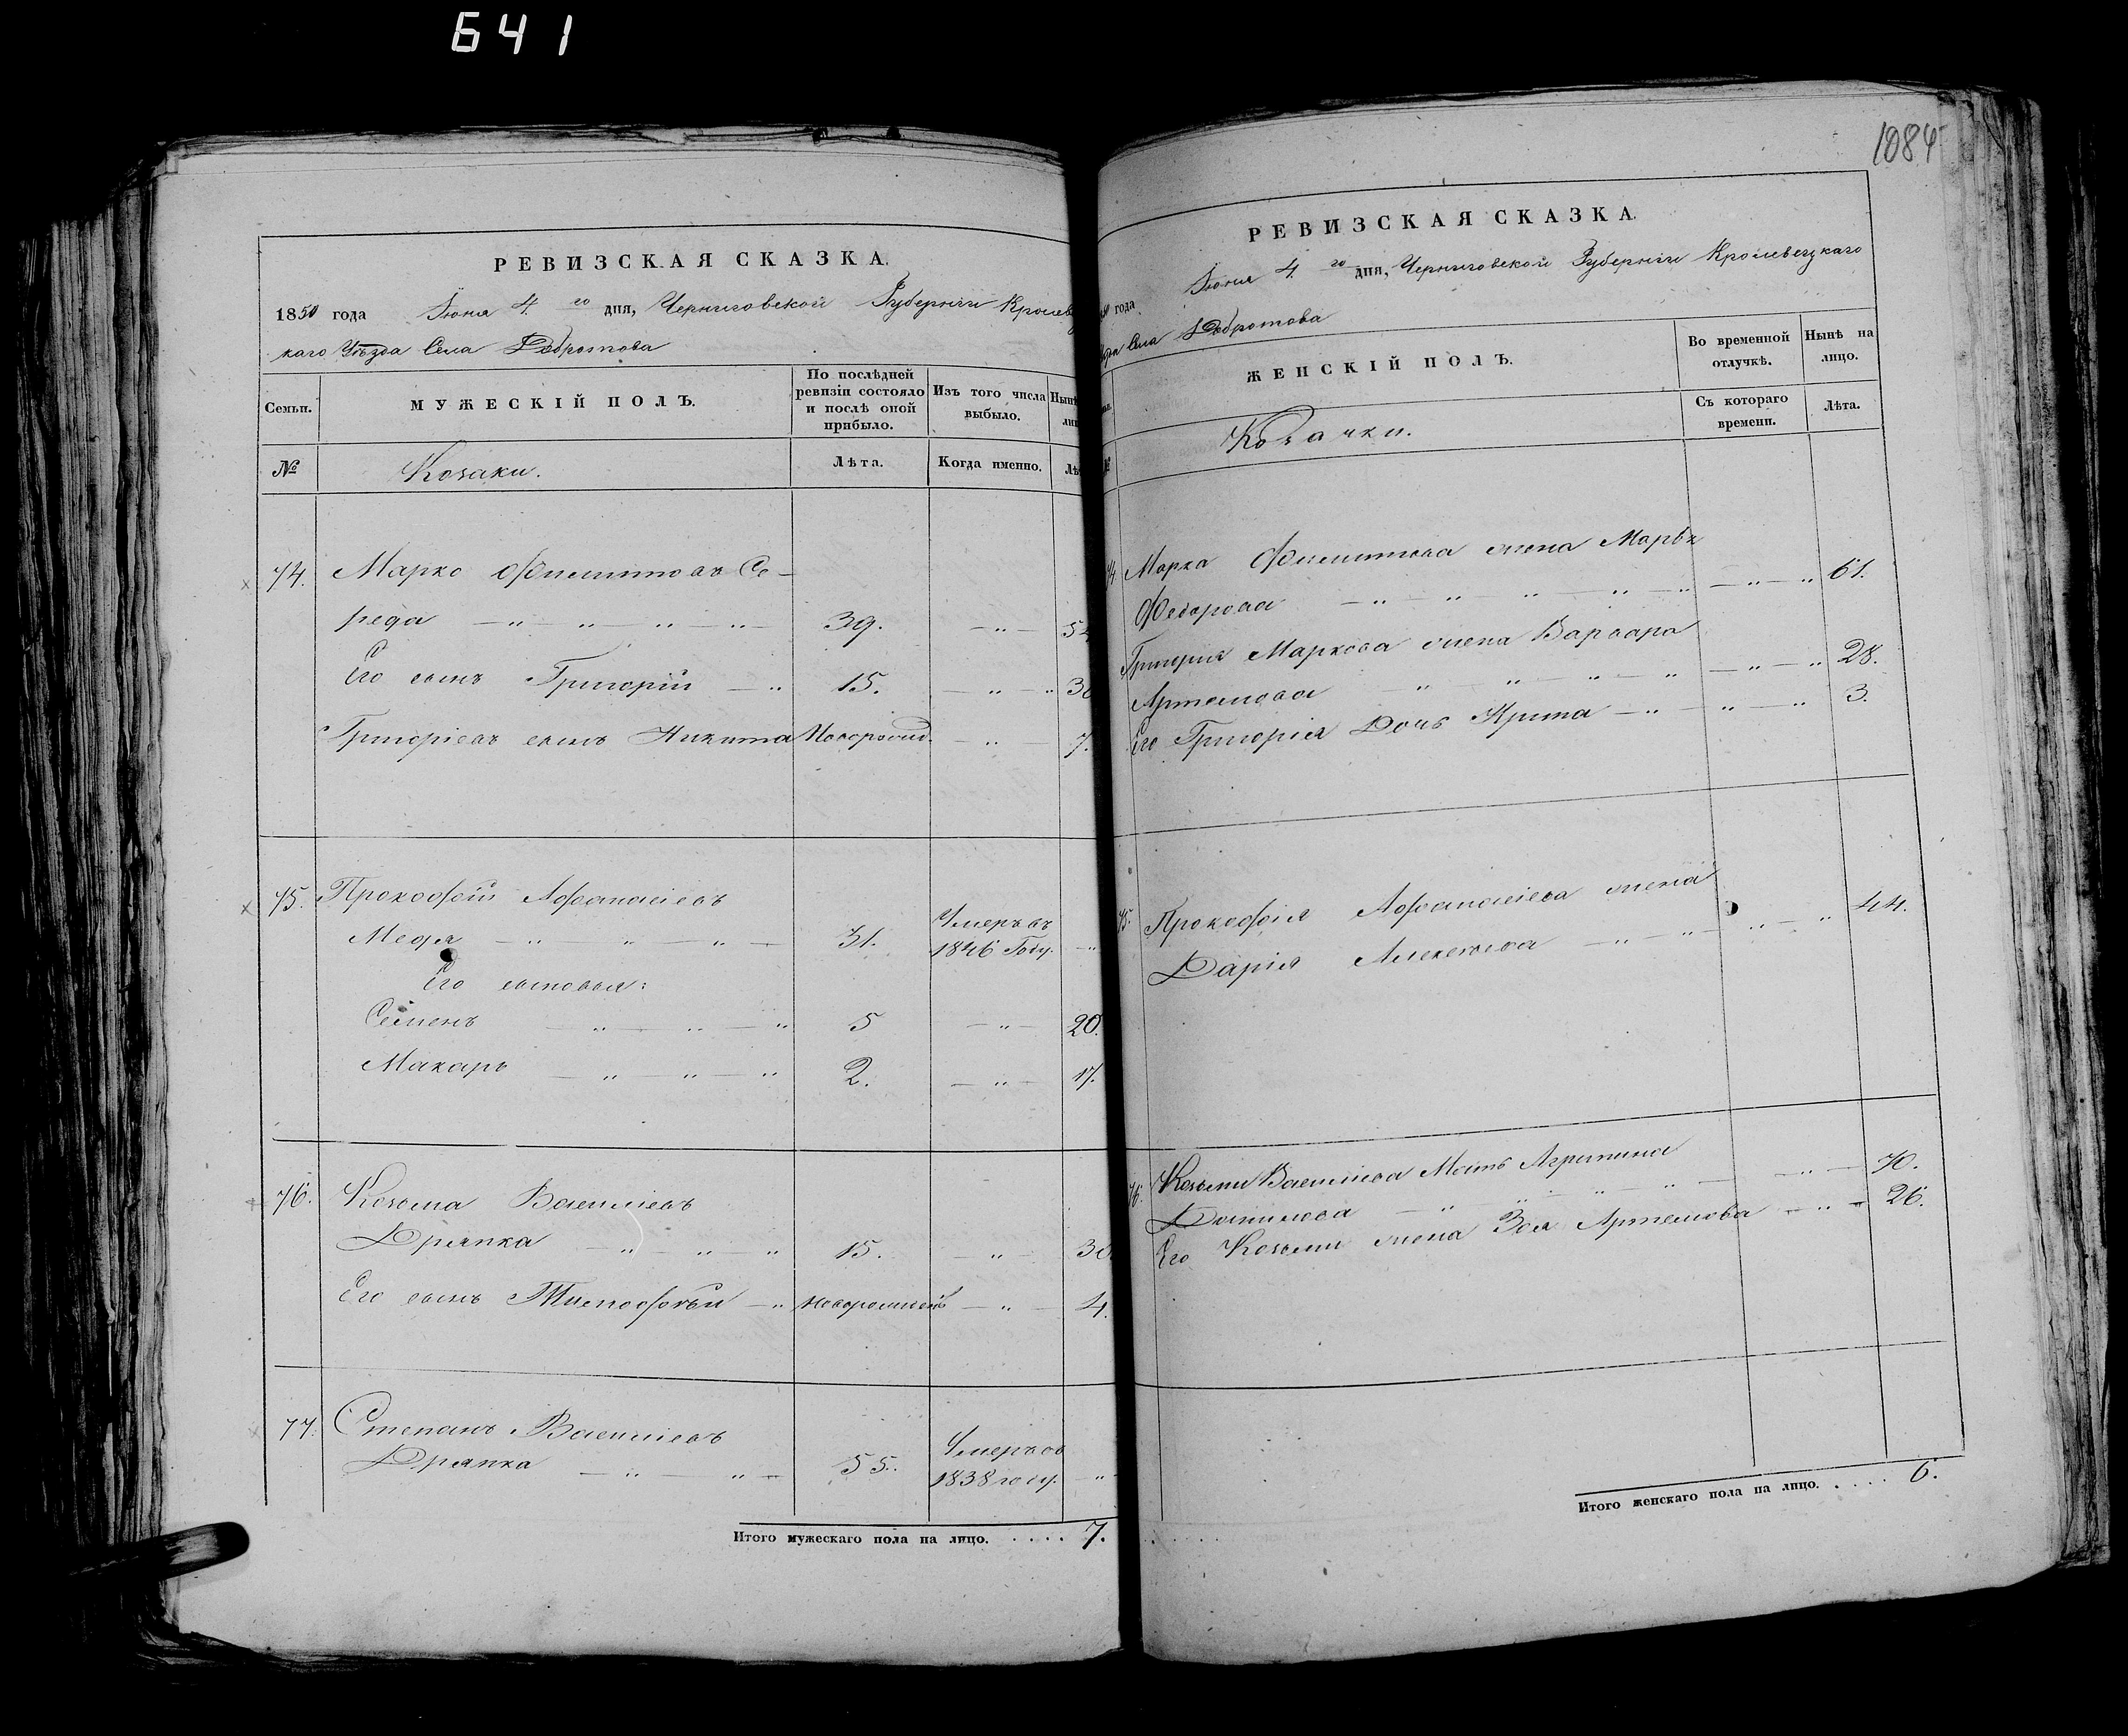 641
РЕВИЗСКАЯ СКАЗКА.
1850 года Іюня 4го дня, Черниговской Губерніи Кролевец
каго Уѣзда Села Добротова
Семьи.
МУЖЕСКІЙ ПОЛЪ.
По послѣдней ревизіи состояло и послѣ оной прибыло.
Изъ того числа выбыло.
№
Козаки.
Лѣта.
Когда именно.
74. Марко Филиповъ Се-
реда 39.
Его сынъ Григорій 15.
Григоріевъ сынъ Никита Новорожд. 7.
75. Прокофій Афанасіевъ
Медя 31. Умеръ въ 1846 Году.
Его сыновья:
Семенъ 5 20.
Макаръ 2. 17.
76. Козьма Василіевъ
Дряпка 15. 30
Его сынъ Тимофѣй новорожден 4.
77. Степанъ Василіевъ
Дряпка 55. Умеръ въ 1838 году.
Итого мужескаго пола на лицо. . . . . 7.
1084
РЕВИЗСКАЯ СКАЗКА.
года Іюня 4го дня, Черниговской Губерніи Кролевецкаго
Села Добротова
ЖЕНСКІЙ ПОЛЪ.
Во временной отлучкѣ.
Нынѣ на лицо.
Козачки.
Съ котораго времени.
Лѣта.
Марка Филипова жена Марья
Федорова 61.
Григорія Маркова жена Варвара
Артемова 28.
Его Григорія Дочь 3.
75. Прокофія Афанасіева жена
Дарія Алексѣева 44.
76. Козьмы Василіева Мать Агрипина
Данилова 70.
Его Козьмы жена Зоя Артемова 26.
Итого женскаго пола на лицо. . . . . 6.